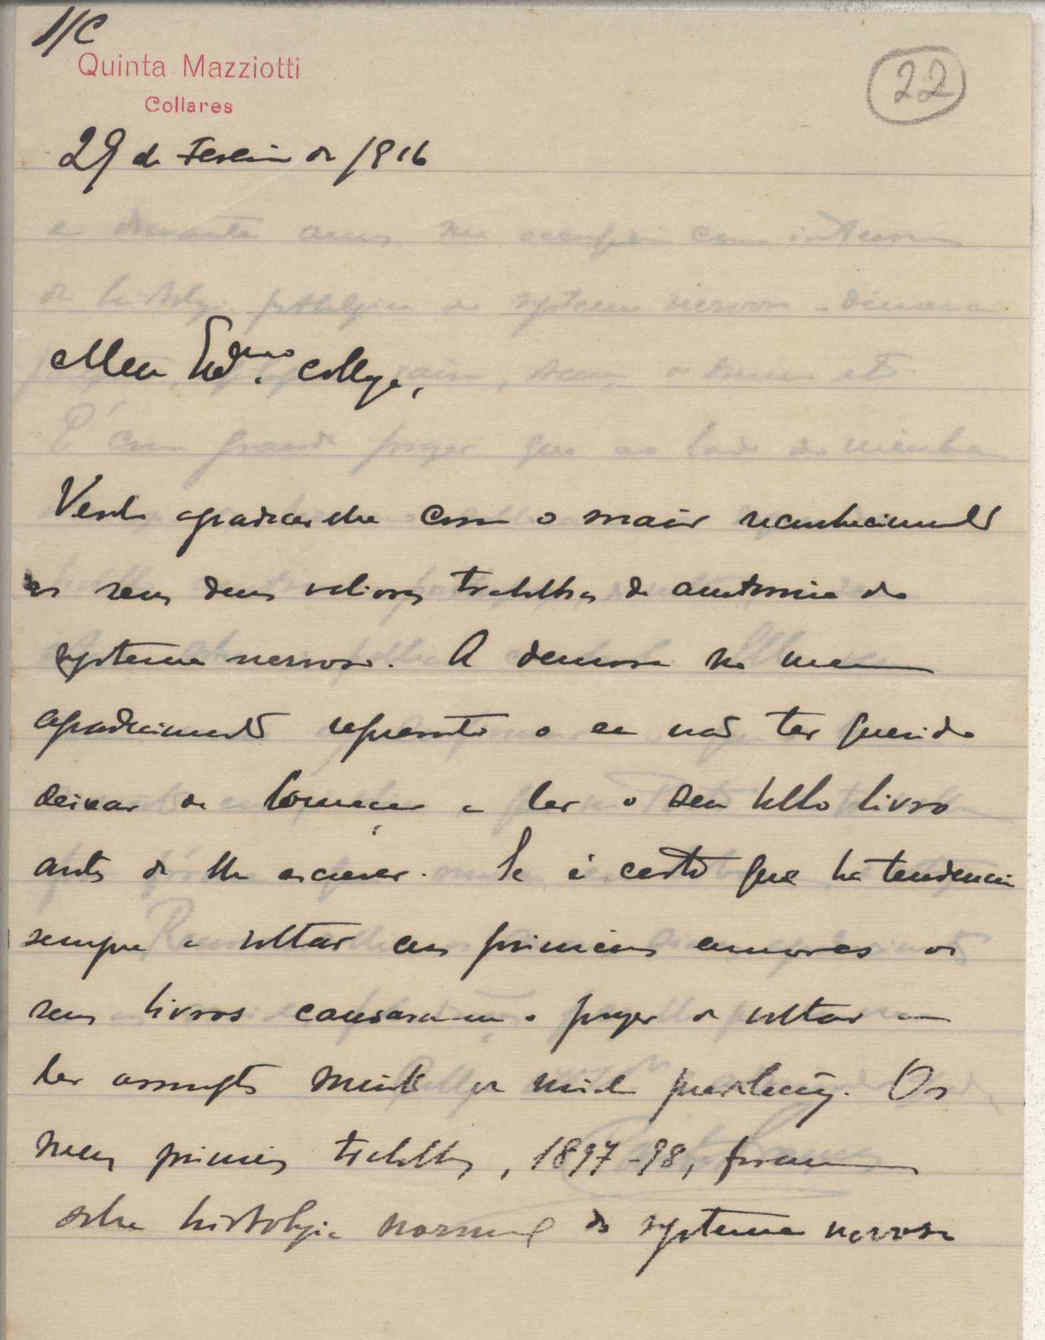 1/C
Quinta Mazziotti
Collares
22
29 de Fevereiro de 1916
Meu Exmo. collega,
Venho agradecer-lhe com o maior reconhecimento
os seus dous valiosos trabalhos de anatomia do
systema nervoso. A demora no meu
agradecimento representa o eu não ter querido
deixar de começar a ler o seu bello livro
antes de lhe escrever. Se é certo que ha tendencia
sempre a voltar aos primeiros amores os
seus livros causaram-me o prazer de voltar a
ler assumptos muito de minha predileção. Os
meus primeiros trabalhos, 1897-98, foram
sobre histologia normal do systema nervoso